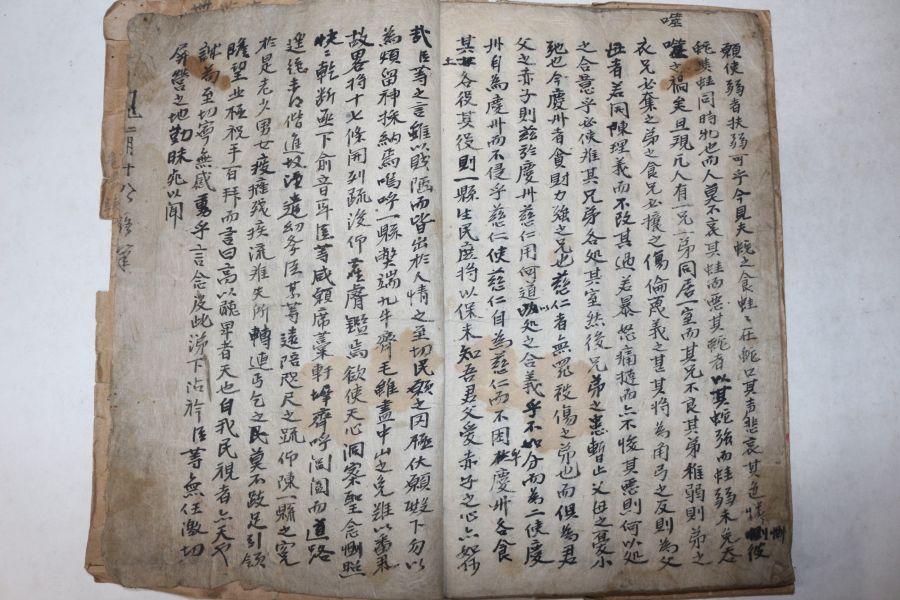 噬
願使弱者扶弱可乎今見夫蛇之食蛙々在蛇口其声悲哀其進情惻彼
蛇與蛙同時物也而人莫不哀其蛙而惡其蛇者以其蛇強而蛙弱未免吞
噬之禍矣且現凡人有一兄一弟同居一室而其兄不良其弟稚弱則弟之
衣兄必奪之弟之食兄必攘之傷倫蔑義之甚其將為用弓之反則為父
母者若開陳理義而不改其過若暴怒痛撻而亦不悛其惡則何以處
之合意乎必使推其兄旁各處其室然後兄弟之患暫止父母之憂小
弛也今慶州者貪財力強之兄也慈仁者無罪被傷之弟也而俱為君
父之赤子則玆於慶州慈仁用何道以處之合義乎不如分而為二使慶
州自為慶州而不侵乎慈仁使慈仁自為慈仁而不困於慶州各食
其土各役其役則一縣生民庶將以保未知吾君父愛赤子之心亦如何
哉臣等之言雖以賤陋而皆出於人情之至切民願之罔極伏願殿下勿以
為煩留神採納焉嗚呼一縣弊端九牛齊毛雖盡中山之兔難以畨
故畧將十七條開列疏後仰虞鑑焉欲使天心洞察聖念惻照
快々乾斷亟下俞音耳臣等咸願席藁軒墀齊呼閶闔而道路
遙遠未偕進玆遣幼學臣某等遠陪咫尺之疏仰陳一縣之寃
於是老少男女疲癃殘疾流離失所轉連丐乞之民莫不跂足引領
瞻望北極祝手百拜而言曰高以聽卑者天也自我民視者亦天也
誠為至切寧無感乎言念及此涕下沾衿臣等無任激切
屏營之地勤昧死以聞
二月十八